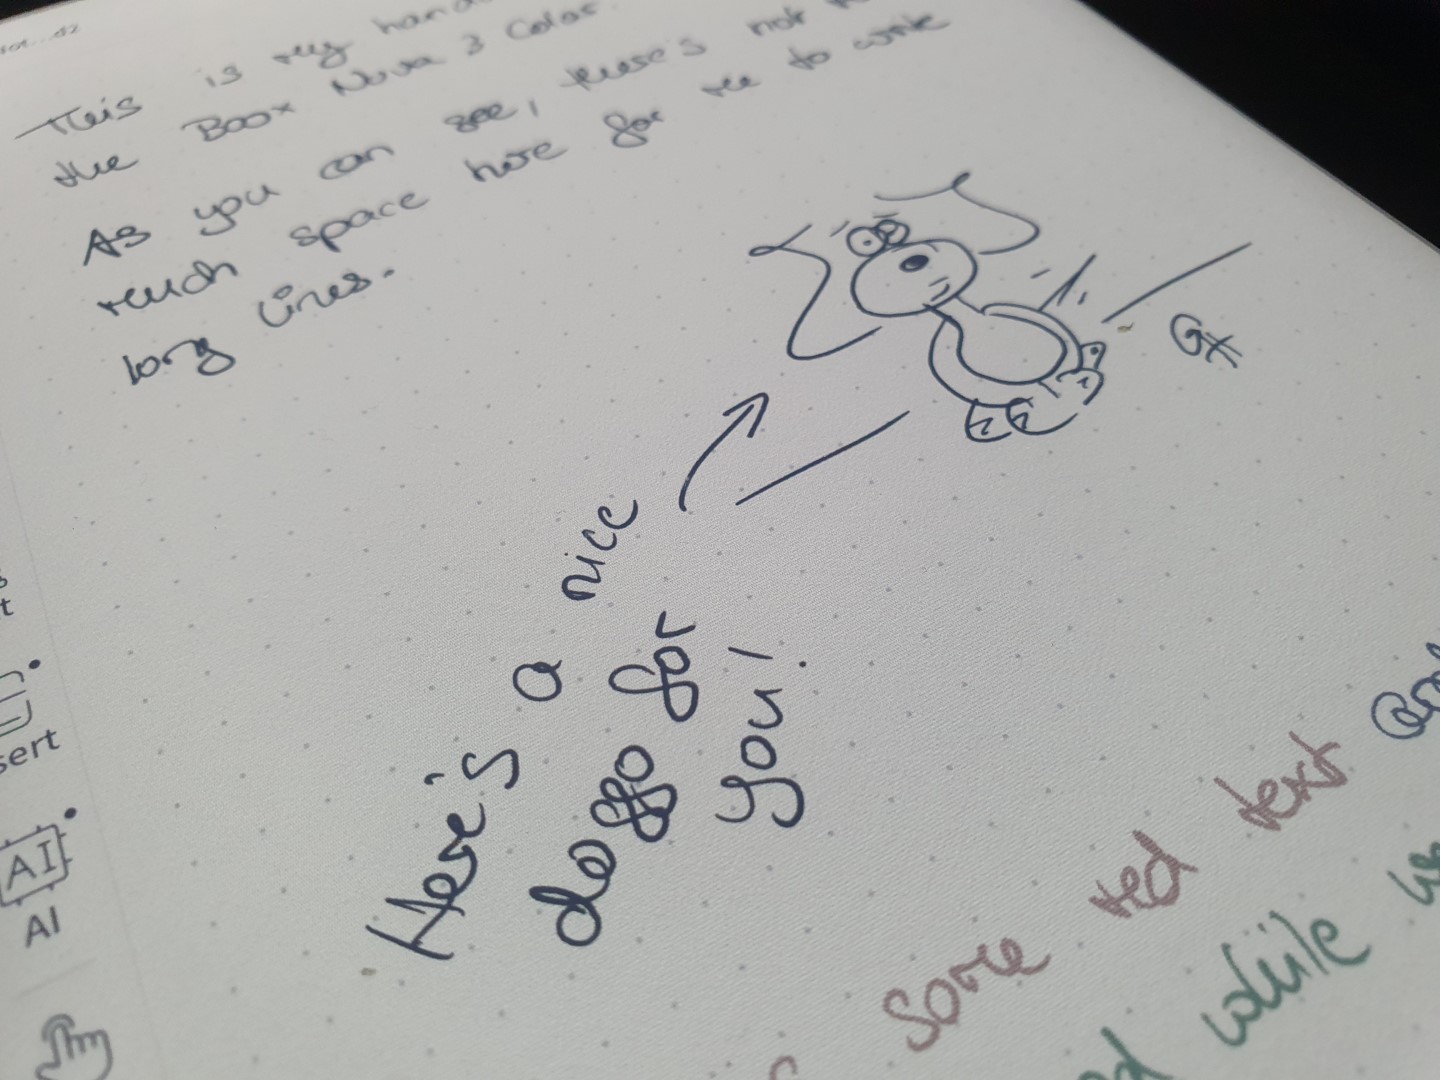 This is my
the Boox Nova 3 Color
As you can see, there's not
much space here for me to write
long lines.
Here's a nice
doggo for
you!
some red text
while
sert
AI
AI